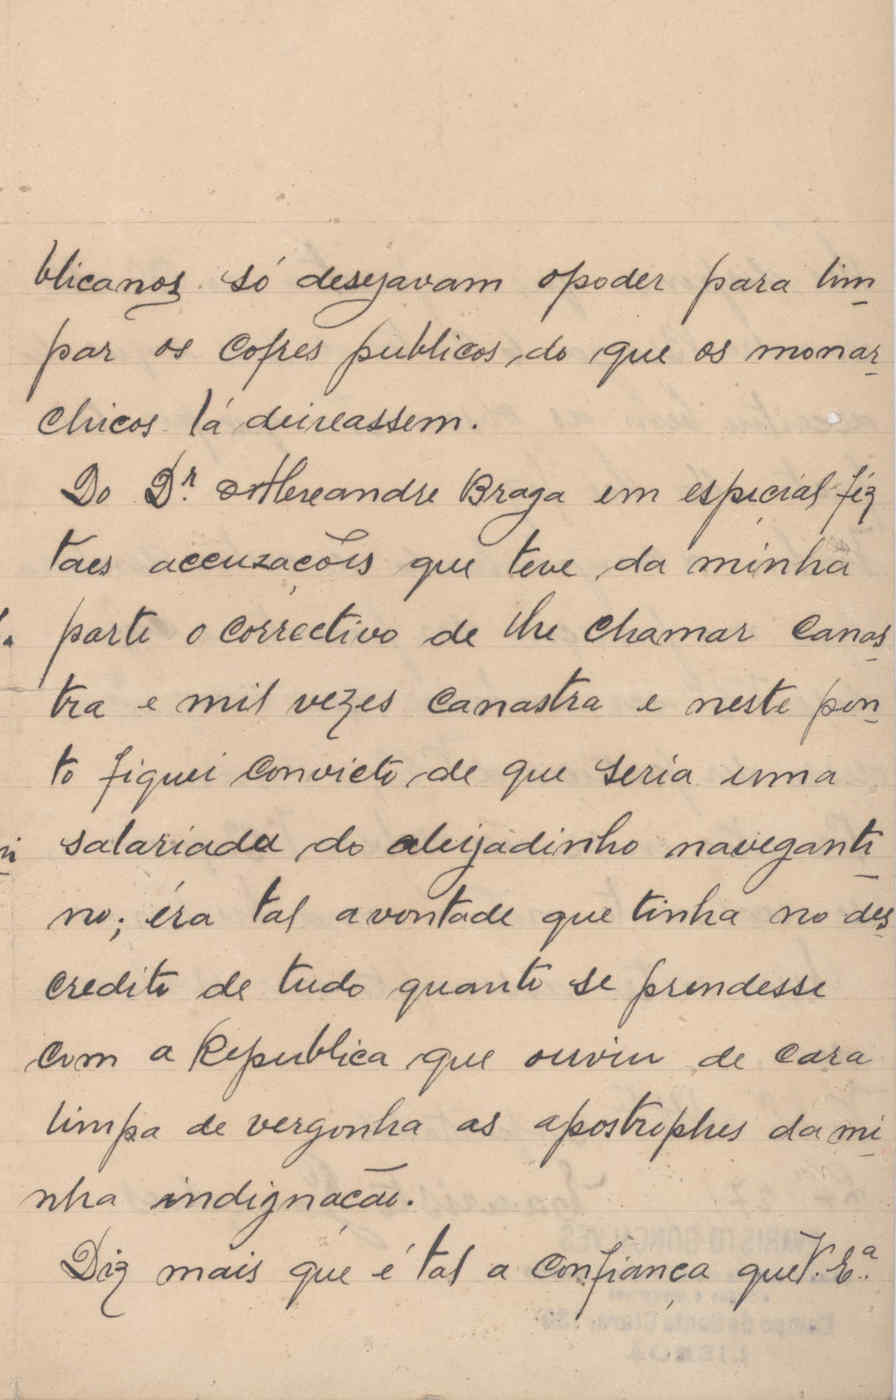 blicanos só desejavam o poder para lim
par os cofres publicos do que os monar
chicos lá deixassem.
Do Dr. Alexandre Braga em especial fez
taes accuzacões que teve da minha
parte o correctivo de lhe chamar canas
tra e mil vezes canastra e neste pon
to fiquei convicto de que seria uma
salariada do aleijadinho naveganti
no; éra tal a vontade que tinha no des
credito de tudo quanto se prendesse
com a Republica que ouviu de cara
limpa de vergonha as apostrophes da mi
nha indignacão.
Diz mais que é tal a confiança que V. Ex.ª